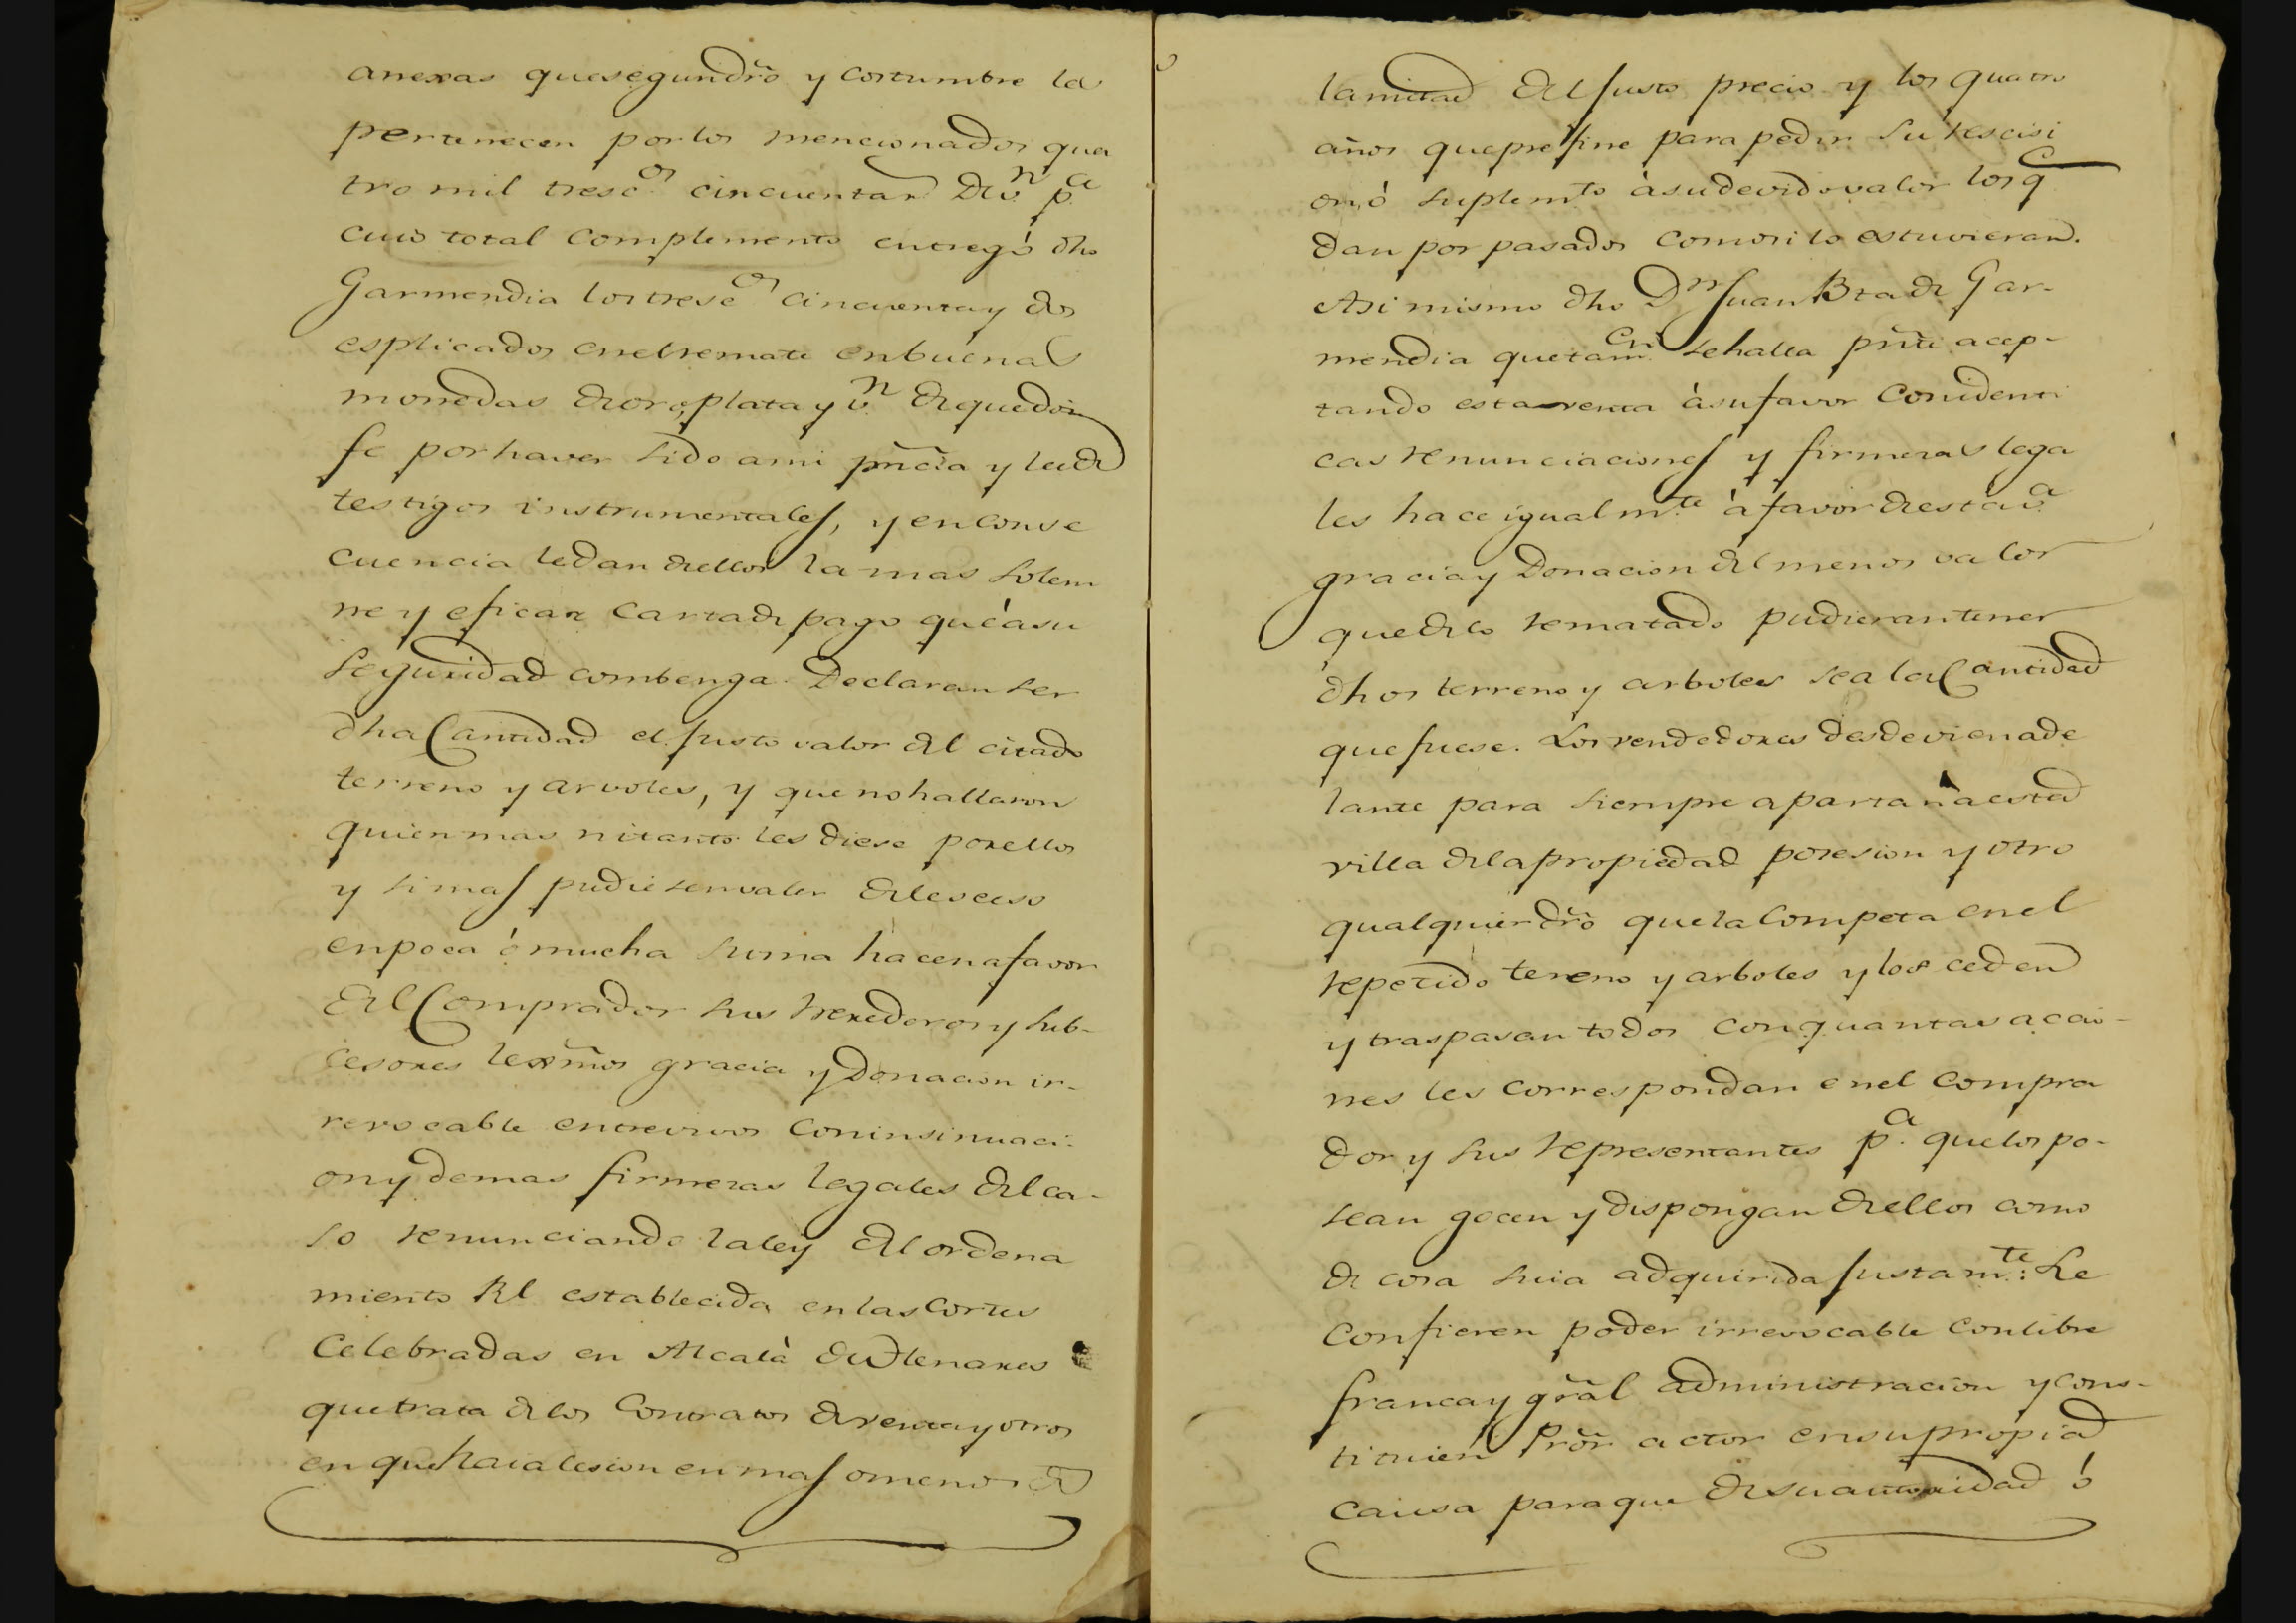 anexas que segun dr̃o y costumbre la
pertenecen por los mencionados qua
tro mil tresc.os cincuenta r.s de v.n p.a
cuio total complemento entregó dho
Garmendia los tresc.os cincuenta y dos
esplicados en el remate en buenas
monedas de oro, plata y v.n de que doi
fe por haver sido a mi pñcia y la de
testigos instrumentales, y en conse
cuencia le dan de ellos la mas solem
ne y eficaz carta de pago que á su
seguridad combenga. Declaran ser
dha Cantidad el justo valor del citado
terreno y arvoles, y que no hallaron
quien mas ni tanto les diese por ellos
y si mas pudiesen valer del esceso
en poca ó mucha suma hacen a favor
del Comprador sus herederos y sub-
cesores lexm̃os gracia y Donacion ir-
revocable entrevivos con insinuaci-
on y demas firmezas legales del ca-
so renunciando la ley del ordena
miento Rl establecida en las Cortes
Celebradas en Alcalà de Henares
que trata de los Contratos de venta y otros
en que haia lesion en mas o menos de
la mitad del justo precio y los quatro
años que prefine para pedir su rescisi
on, ó suplem.to à su devido valor los q.e
dan por pasados como si lo estuvieran.
Asi mismo dho D.n Juan Bta de Gar-
mendia que tam.en se halla pñte acep-
tando esta venta à su favor con identi
cas renunciaciones y firmezas lega
les hace igualm.te à favor de esta v.a
gracia y Donacion del menos valor
que de lo rematado pudieran tener
dhos terreno y arboles sea la Cantidad
que fuese. Los vendedores desde oi en ade
lante para siempre apartan à esta
villa de la propiedad posesion y otro
qualquier dr̃o que la competa en el
repetido terreno y arboles y los ceden
y traspasan todos con quantas accio-
nes les correspondan en el compra
dor y sus representantes p.a que los po-
sean gocen y dispongan de ellos como
de cosa suia adquirida justam.te: Le
confieren poder irrevocable con libre
franca y gr̃al administracion y cons-
tituien Pror̃ actor en su propia
causa para que de su autoridad ó